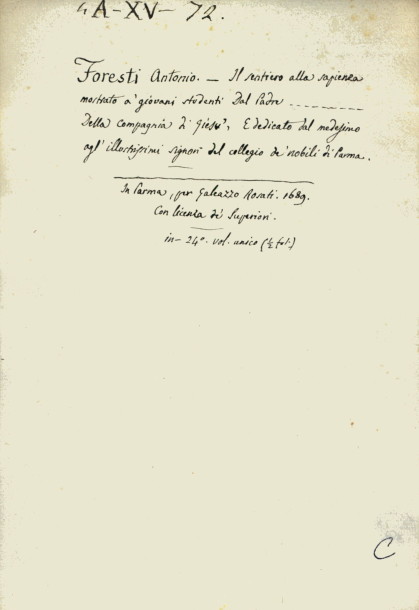 4 A-XV- 72.
Foresti Antonio. — Il sentiero alla sapienza
mostrato a' giovani studenti Dal Padre ___________
Della Compagnia di Giesu', E dedicato dal medesimo
agl'illustrissimi signori del collegio de' nobili di Parma.
In Parma, per Galeazzo Rosati. 1689.
Con licenza de' Superiori.
in-24º. vol. unico (½ fol.)
C